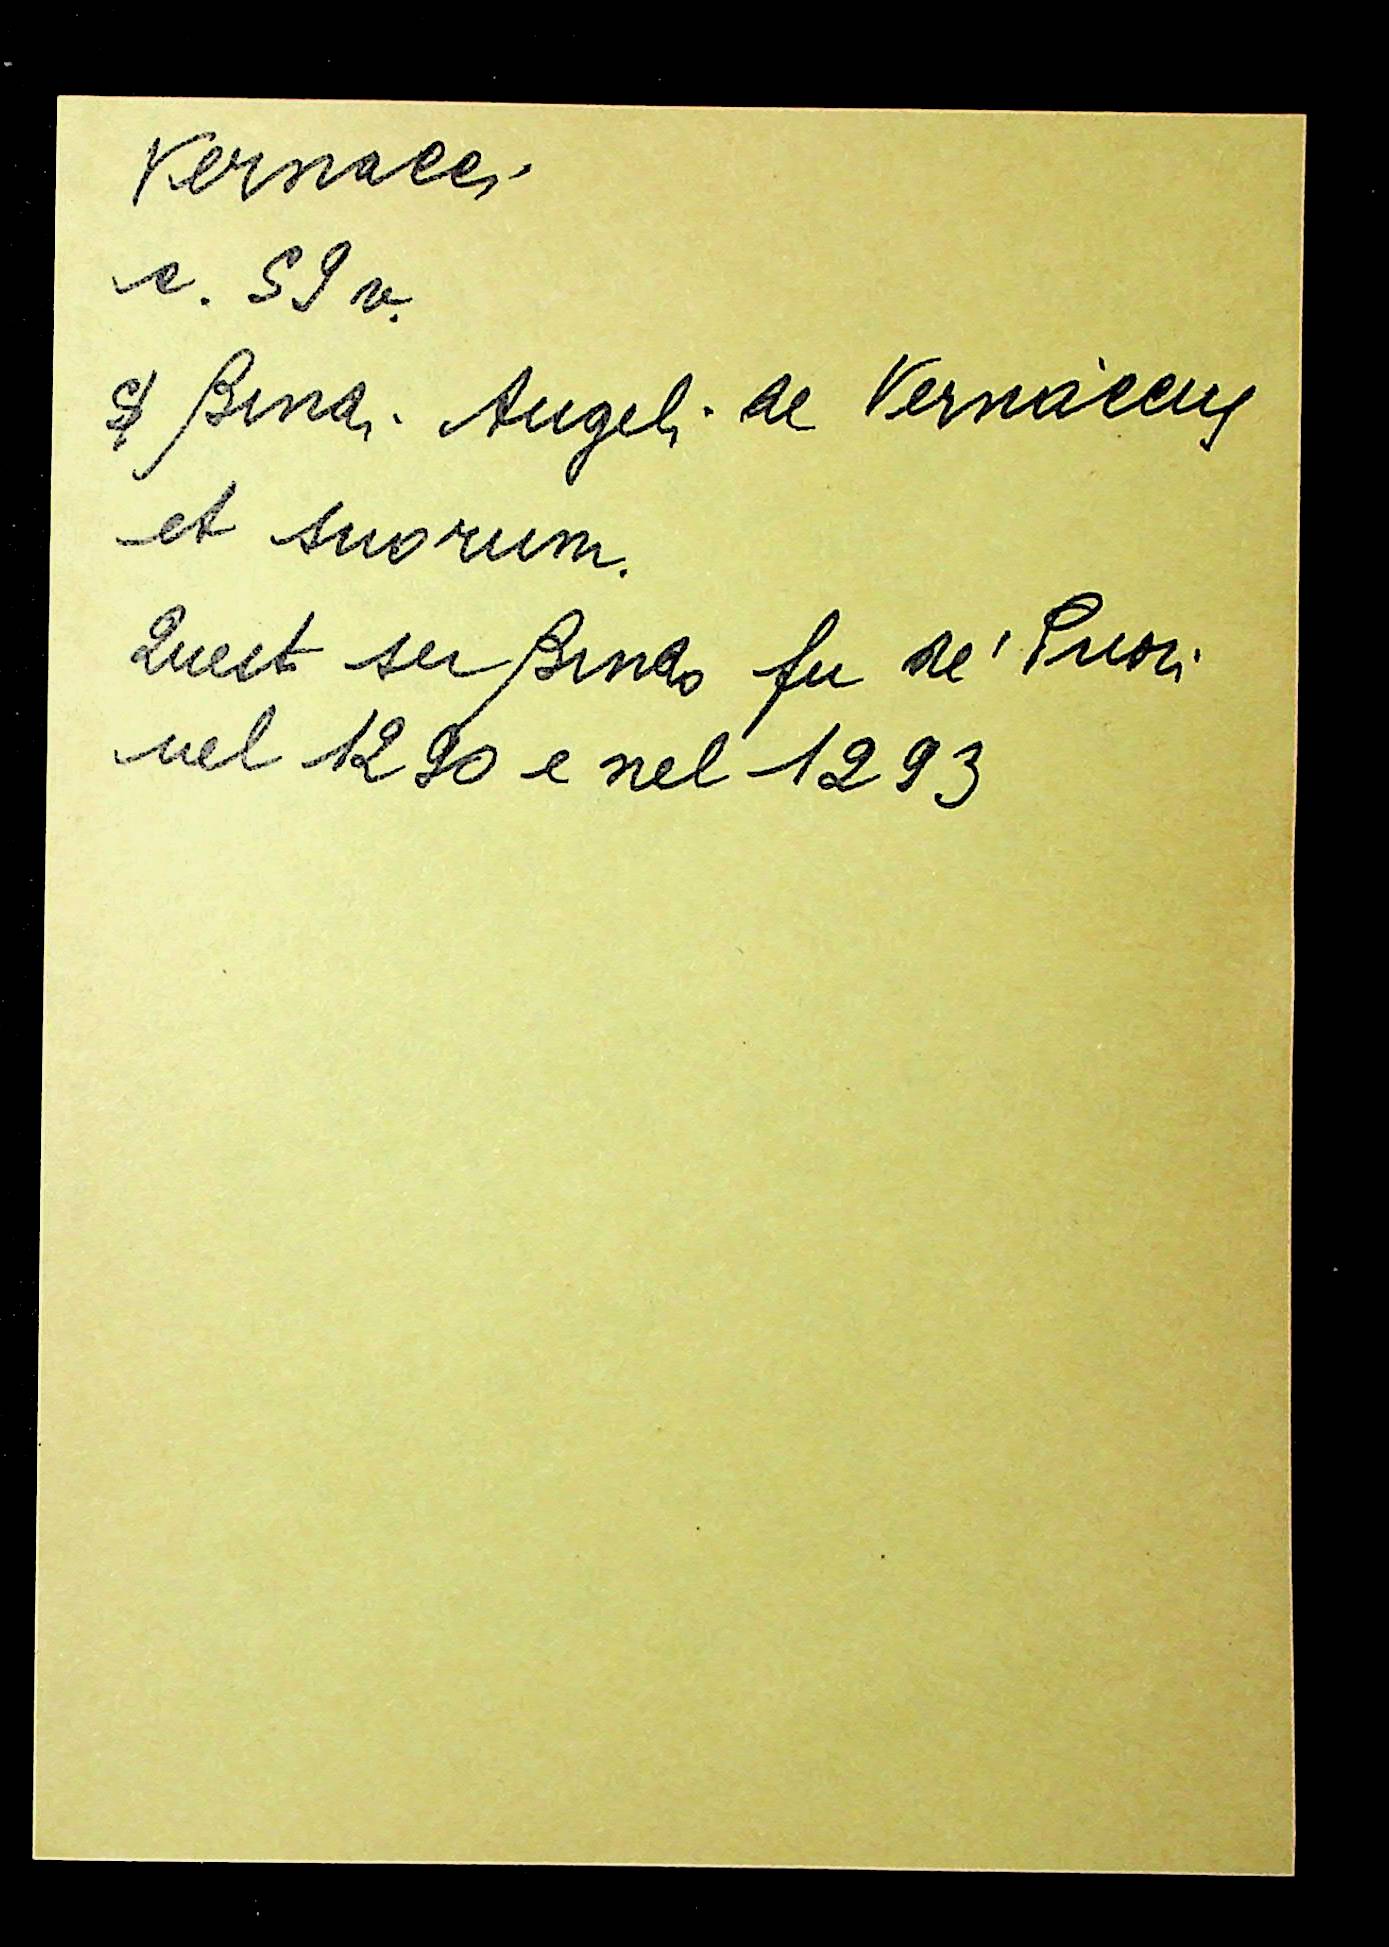 Vernacci
c. 59 v.
S/ Bindi Angeli de Vernacciis
et suorum.
Questi ser Bindo fu de' Priori
nel 1290 e nel 1293